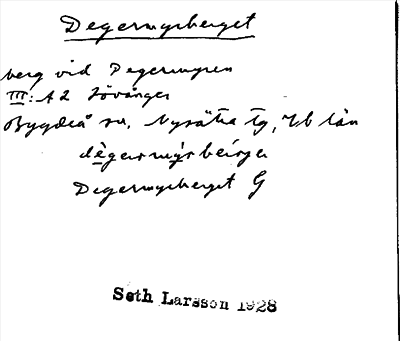 Degermyrberget
berg vid Degermyren
III:A2 Lövånger
Bygdeå sn, Nysätra tg, Vb län
dègermýrbèrge
Degermyrberget G
Seth Larsson 1928